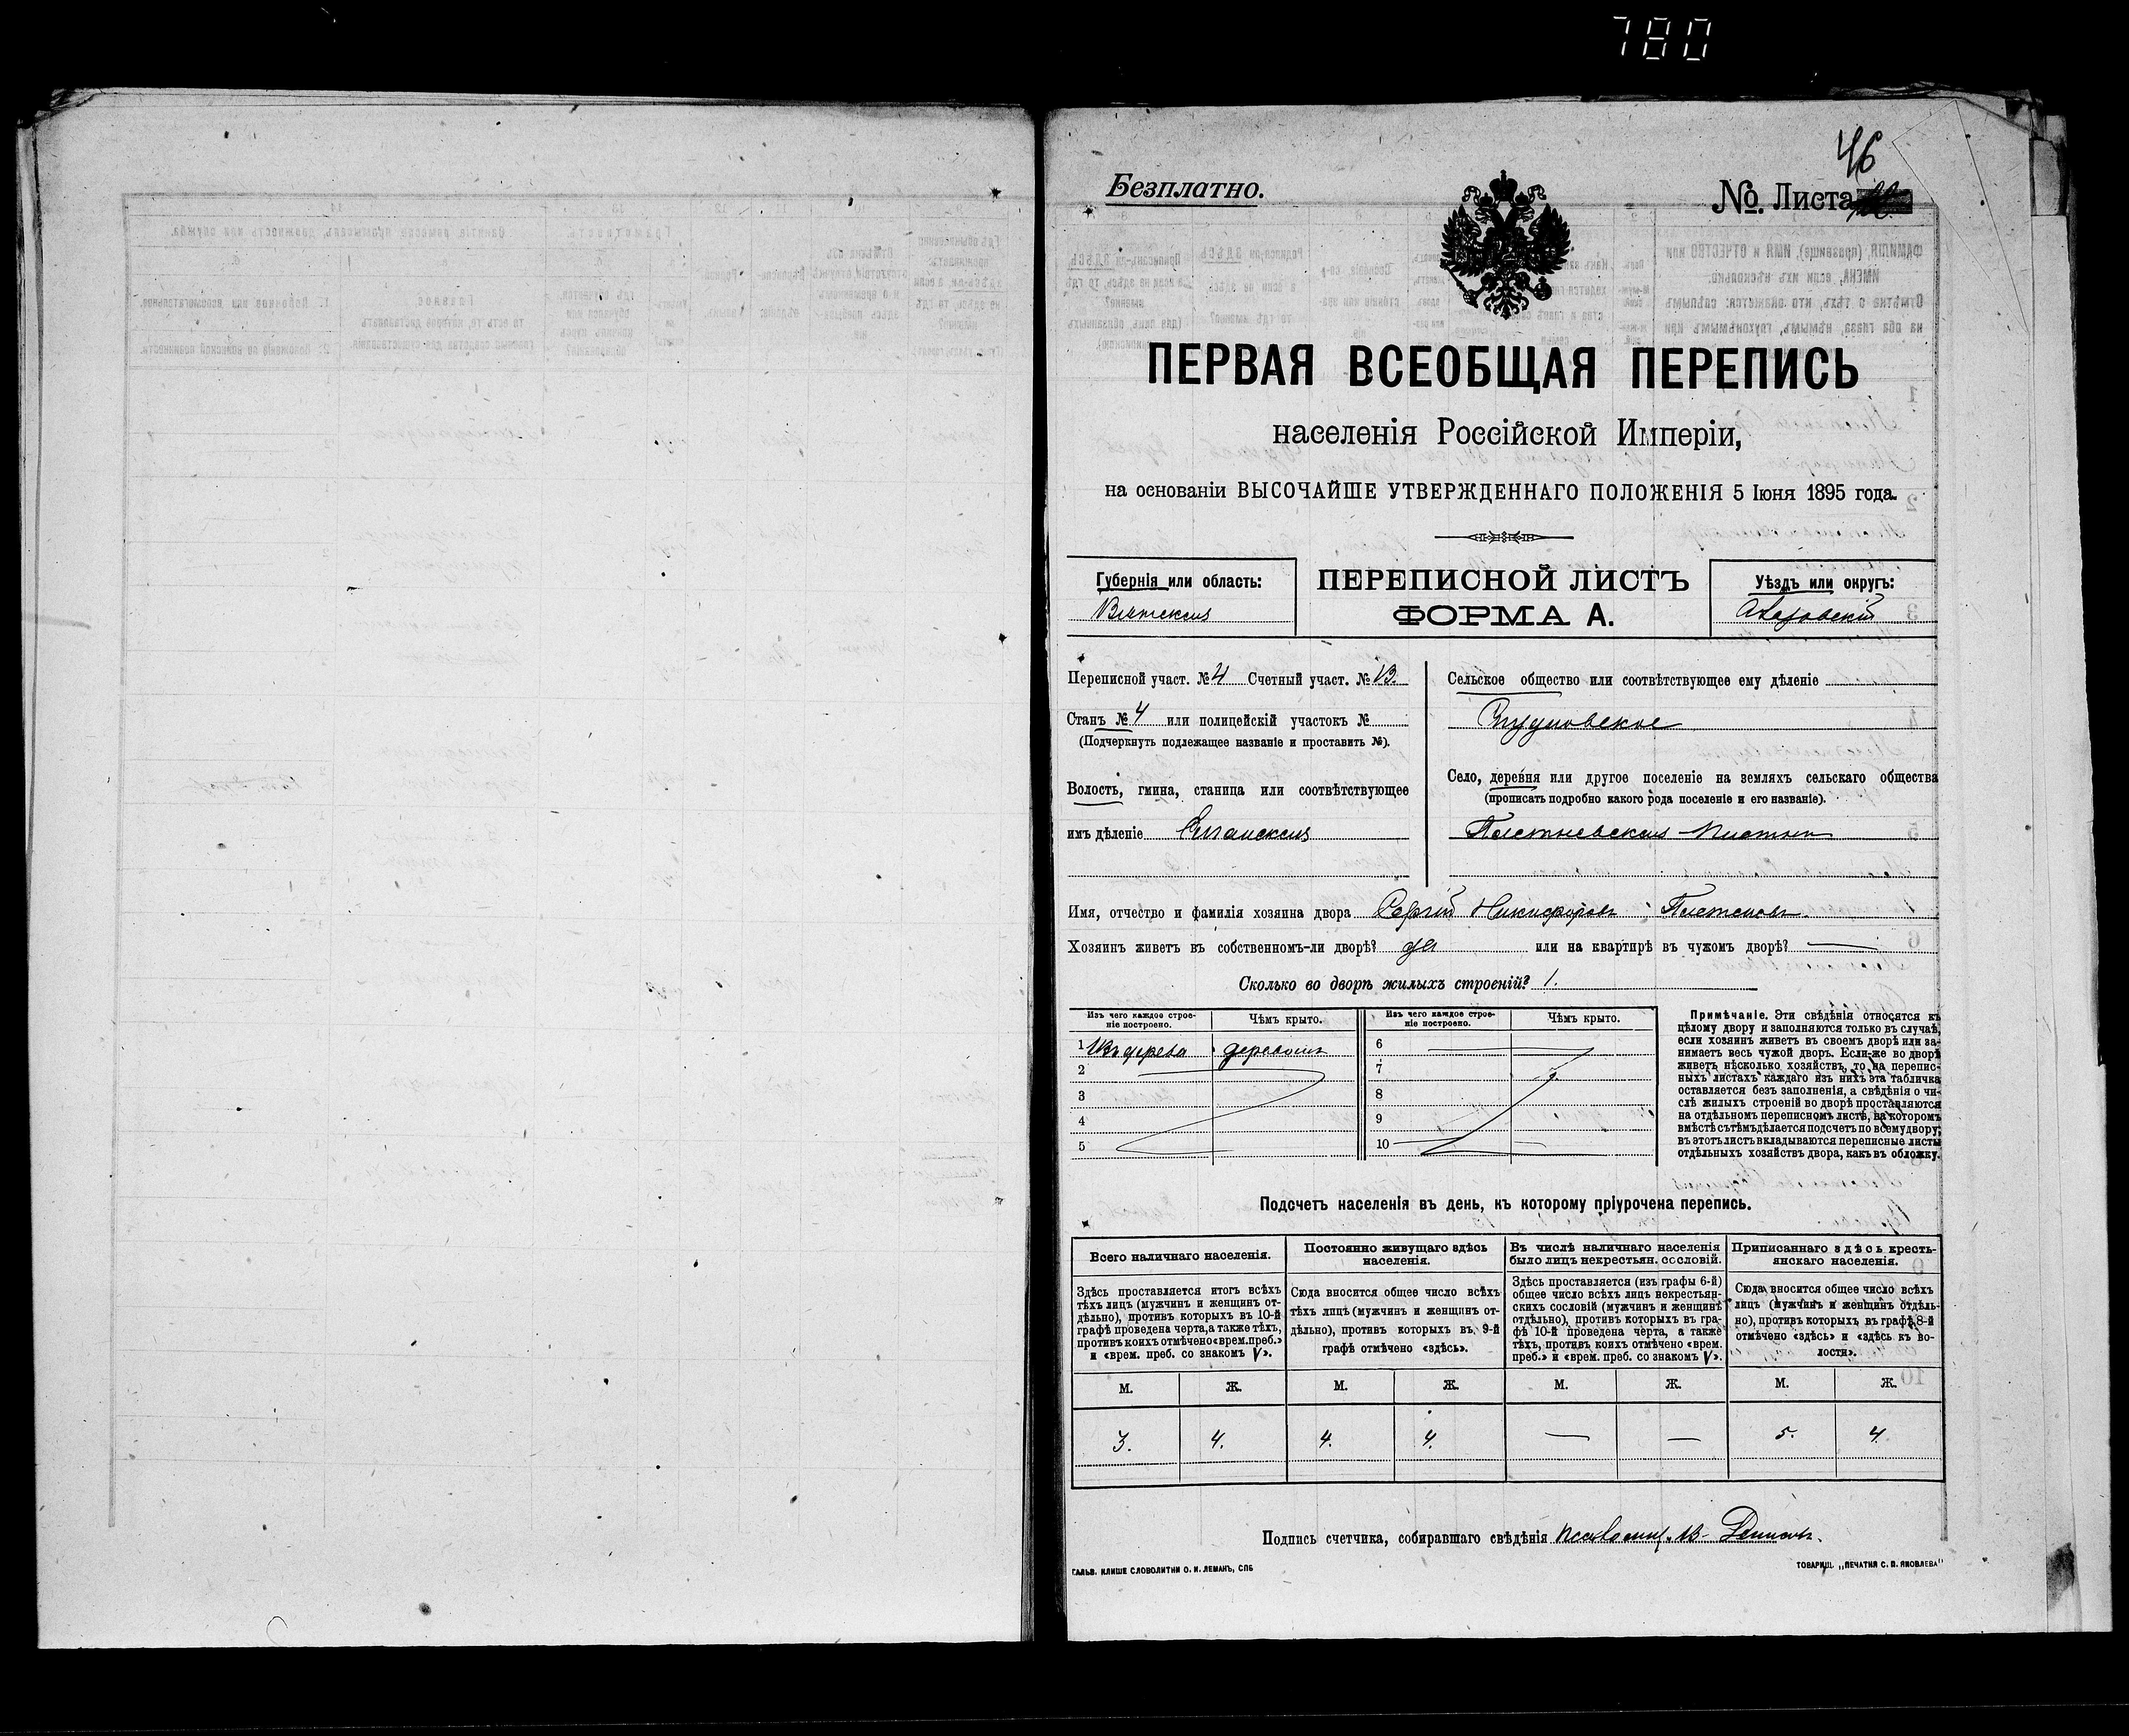 780
46
Безплатно.
№ Листа
ПЕРВАЯ ВСЕОБЩАЯ ПЕРЕПИСЬ
населенія Россійской Имперіи,
на основаніи ВЫСОЧАЙШЕ УТВЕРЖДЕННАГО ПОЛОЖЕНІЯ 5 Іюня 1895 года.
Губернія или область:
Вятская
ПЕРЕПИСНОЙ ЛИСТЪ
ФОРМА А.
Уѣздъ или округъ:
Глазовскій
Переписной участ. № 4 Счетный участ. № 13.
Станъ № 4 или полицейскій участокъ №
(Подчеркнуть подлежащее названіе и проставить №).
Волость, гмина, станица или соотвѣтствующее
имъ дѣленіе
Сельское общество или соотвѣтствующее ему дѣленіе
Село, деревня или другое поселеніе на земляхъ сельскаго общества
(прописать подробно какого рода поселеніе и его названіе).
Имя, отчество и фамилія хозяина двора Сергѣй Никифоровъ
Хозяинъ живетъ въ собственномъ-ли дворѣ? да или на квартирѣ въ чужомъ дворѣ? —
Сколько во дворѣ жилыхъ строеній? 1.
Изъ чего каждое строе-
ніе построено.
Чѣмъ крыто.
Изъ чего каждое строе-
ніе построено.
Чѣмъ крыто.
1 Изъ дерева деревомъ
2
3
4
5
6
7
8
9
10
Примѣчаніе. Эти свѣдѣнія относятся къ
цѣлому двору и заполняются только въ случаѣ,
если хозяинъ живетъ въ своемъ дворѣ или за-
нимаетъ весь чужой дворъ. Если-же во дворѣ
живетъ нѣсколько хозяйствъ, то на перепис-
ныхъ листахъ каждаго изъ нихъ эта табличка
оставляется безъ заполненія, а свѣдѣнія о чи-
слѣ жилыхъ строеній во дворѣ проставляются
на отдѣльномъ переписномъ листѣ, на которомъ
вмѣстѣ съ тѣмъ дѣлается подсчетъ по всему двору;
въ этотъ листъ вкладываются переписные листы
отдѣльныхъ хозяйствъ двора, какъ въ обложку.
Подсчетъ населенія въ день, къ которому пріурочена перепись.
Всего наличнаго населенія.
Здѣсь проставляется итогъ всѣхъ
тѣхъ лицъ (мужчинъ и женщинъ от-
дѣльно), противъ которыхъ въ 10-й
графѣ проведена черта, а также тѣхъ,
противъ коихъ отмѣчено «врем. преб.»
и «врем. преб. со знакомъ V».
Постоянно живущаго здѣсь
населенія.
Сюда вносится общее число всѣхъ
тѣхъ лицъ (мужчинъ и женщинъ от-
дѣльно), противъ которыхъ въ 9-й
графѣ отмѣчено «здѣсь».
Въ числѣ наличнаго населенія
было лицъ некрестьян. сословій.
Здѣсь проставляется (изъ графы 6-й)
общее число всѣхъ лицъ некрестьян-
скихъ сословій (мужчинъ и женщинъ
отдѣльно), противъ которыхъ въ гра-
фѣ 10-й проведена черта, а также
тѣхъ, противъ коихъ отмѣчено «врем.
преб.» и «врем. преб. со знакомъ V».
Приписаннаго здѣсь кресть-
янскаго населенія.
Сюда вносится общее число всѣхъ
лицъ (мужчинъ и женщинъ отдѣль-
но), противъ которыхъ въ графѣ 8-й
отмѣчено «здѣсь» и «здѣсь къ во-
лости».
М. Ж. М. Ж. М. Ж. М. Ж.
3. 4. 4. 4. — — 5. 4.
Подпись счетчика, собиравшаго свѣдѣнія
ГАЛЬВ. КЛИШЕ СЛОВОЛИТНИ О. И. ЛЕМАНЪ, СПБ
ТОВАРИЩ. „ПЕЧАТНЯ С. П. ЯКОВЛЕВА"